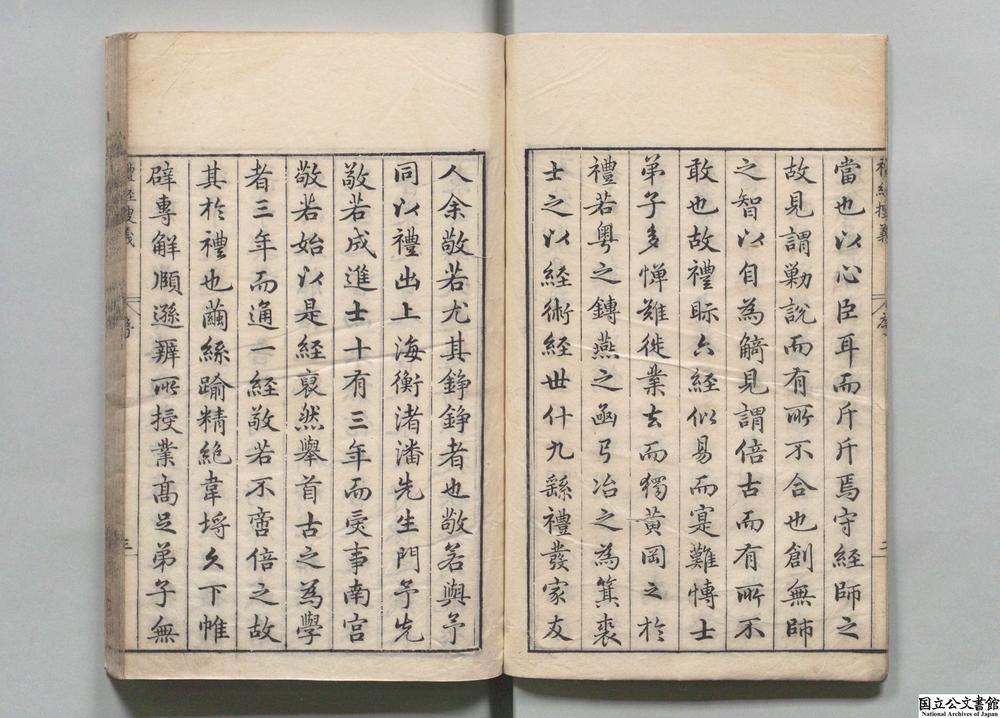 當也以心臣耳而斤斤焉守經師之
故見謂勦說而有所不合也創無師
之智以自為觿見謂倍古而有所不
敢也故禮眎六經似易而寔難博士
弟子多憚難徙業去而獨黃岡之於
禮若粵之鏄燕之函弓冶之為箕裘
士之以經術經世什九繇禮發家友
人余敬若尤其錚錚者也敬若與予
同以禮出上海衡渚潘先生門予先
敬若成進士十有三年而受事南宮
敬若始以是經裒然舉首古之為學
者三年而通一經敬若不啻倍之故
其於禮也繭絲踰精絕韋埒久下帷
辟專解頤遜辨所授業高足弟子無
禮經搜義
序
三
国立公文書館
National Archives of Japan